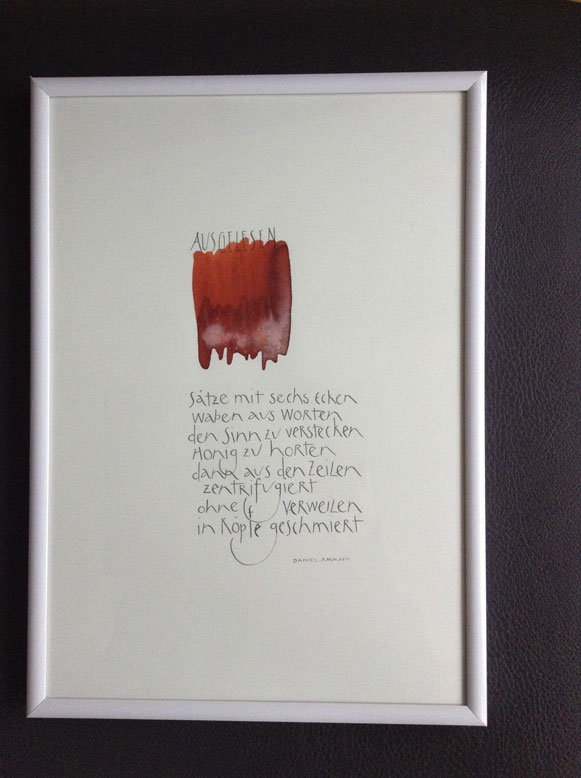 AUSGELESEN
Sätze mit sechs Ecken
Waben aus Worten
den Sinn zu verstecken
Honig zu horten
dann aus den Zeilen
zentrifugiert
ohne verweilen
in Köpfe geschmiert
DANIEL